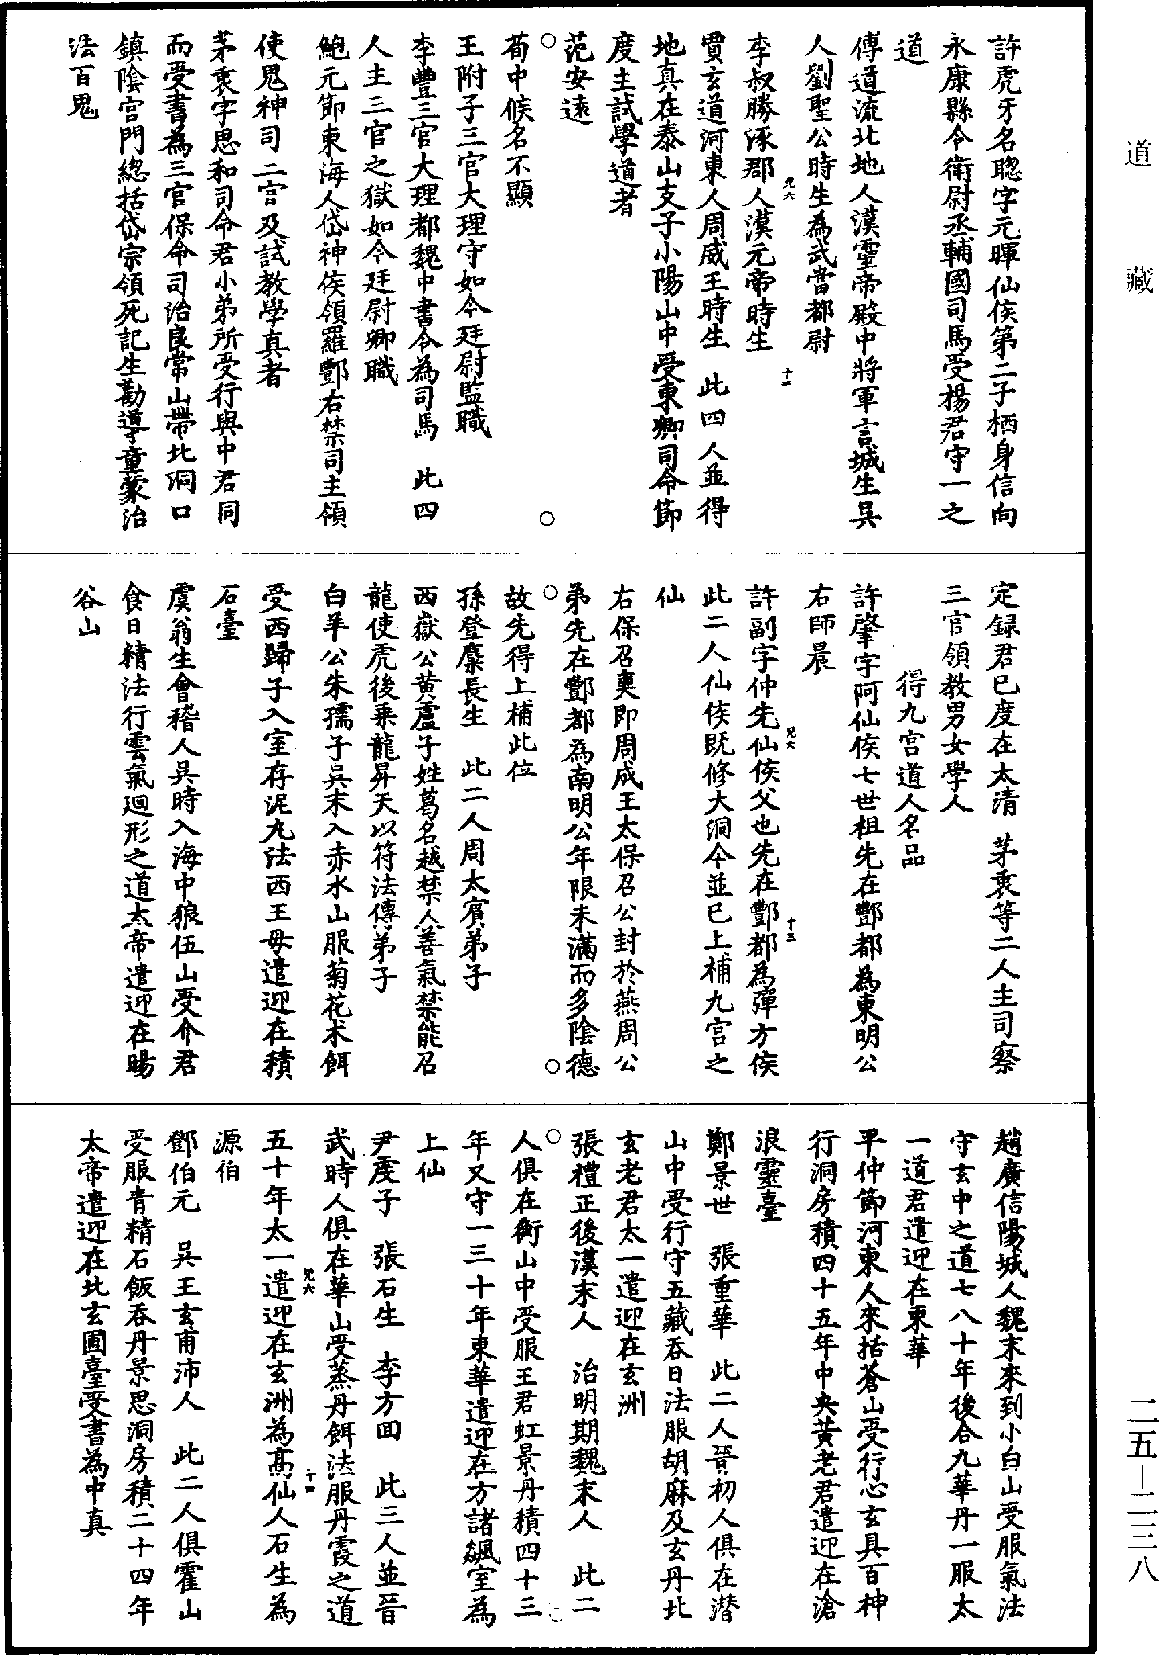 道藏
許虎牙名聰字元暉仙侯第二子栖身信向
永康縣令衛尉丞輔國司馬受楊君守一之
道
傅道流北地人漢靈帝殿中將軍言城生吳
人劉聖公時生為武當都尉
李叔勝涿郡人漢元帝時生
賈玄道河東人周威王時生 此四人並得
地真在泰山支子小陽山中受東卿司命節
度主試學道者
范安遠
荀中候名不顯
王附子三官大理守如今廷尉監職
李豐三官大理都魏中書令為司馬 此四
人主三官之獄如今廷尉卿職
鮑元節東海人岱神侯領羅酆右禁司主領
使鬼神司二宮及試教學真者
茅衷字思和司命君小弟所受行與中君同
而受書為三官保命司治良常山帶北洞口
鎮陰宮門總括岱宗領死記生勸導童蒙治
法百鬼
定録君已度在太清 茅衷等二人主司察
三官領教男女學人
得九宮道人名品
許肇字阿仙侯七世祖先在酆都為東明公
右師晨
許副字仲先仙侯父也先在酆都為彈方侯
此二人仙侯既修大洞今並已上補九宮之
仙
右保召奭即周成王太保召公封於燕周公
弟先在酆都為南明公年限未滿而多陰德
故先得上補此位
孫登糜長生 此二人周太賓弟子
西嶽公黃盧子姓葛名越禁人善氣禁能召
龍使虎後乘龍昇天以符法傳弟子
白羊公朱孺子吳末入赤水山服菊花术餌
受西歸子入室存泥丸法西王母遣迎在積
石臺
虞翁生會稽人吳時入海中狼伍山受介君
食日精法行雲氣迴形之道太帝遣迎在暘
谷山
趙廣信陽城人魏末來到小白山受服氣法
守玄中之道七八十年後合九華丹一服太
一道君遣迎在東華
平仲節河東人來括蒼山受行心玄具百神
行洞房積四十五年中央黃老君遣迎在滄
浪靈臺
鄭景世 張重華 此二人晉初人俱在潛
山中受行守五藏吞日法服胡麻及玄丹北
玄老君太一遣迎在玄洲
張禮正後漢末人 治明期魏末人 此二
人俱在衡山中受服王君虹景丹積四十三
年又守一三十年東華遣迎在方諸飆室為
上仙
尹虔子 張石生 李方回 此三人並晉
武時人俱在華山受蒸丹餌法服丹霞之道
五十年太一遣迎在玄洲為高仙人石生為
源伯
鄧伯元 吳王玄甫沛人 此二人俱霍山
受服青精石飯吞丹景思洞房積二十四年
太帝遣迎在北玄圃臺受書為中真
二五—二三八